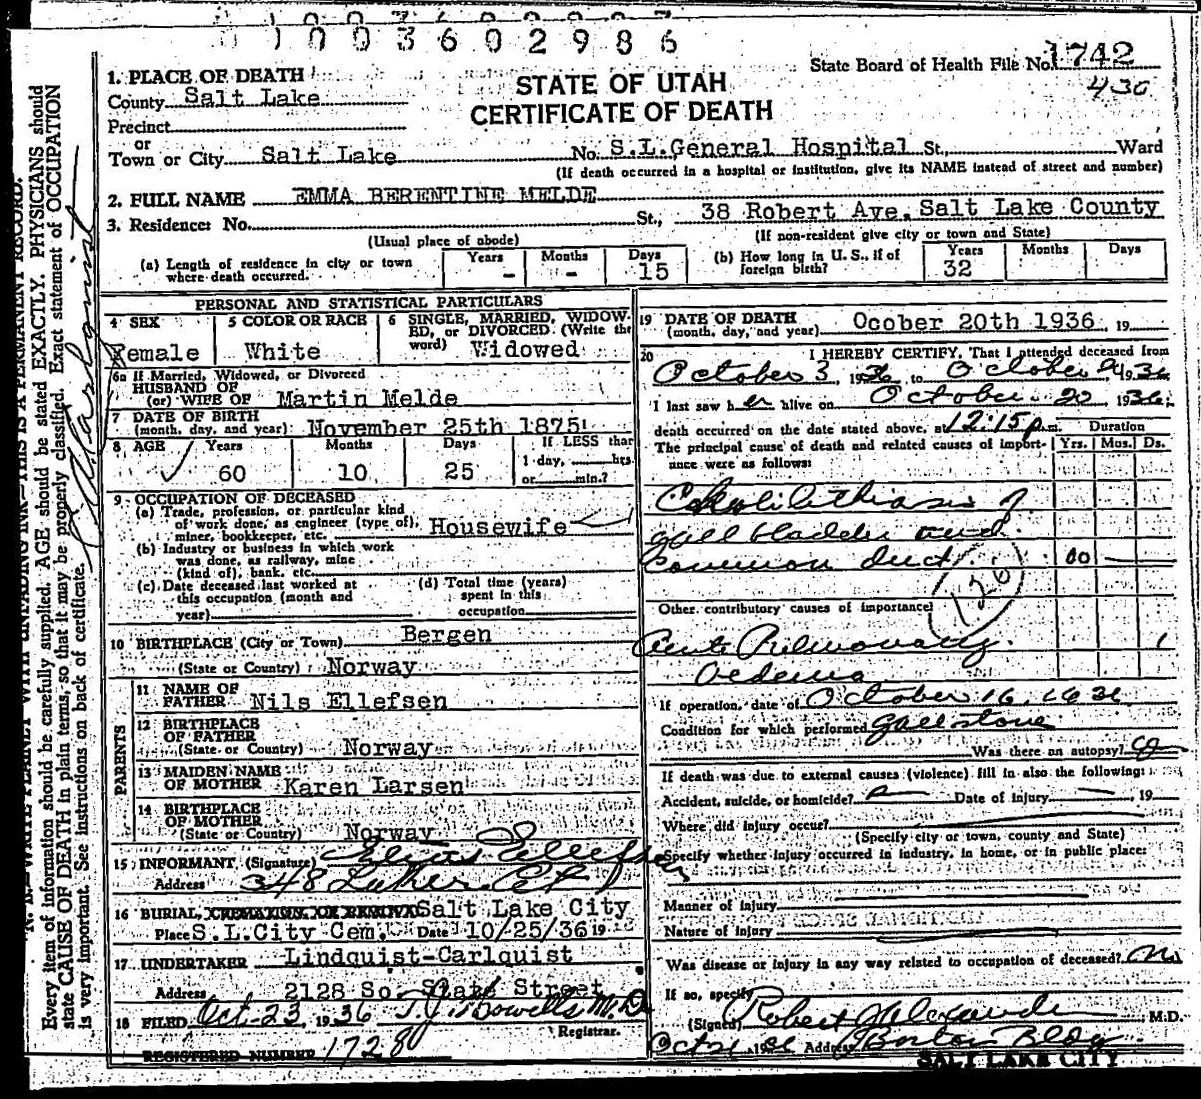 1003602986
State Board of Health File No. 1742
430
STATE OF UTAH
CERTIFICATE OF DEATH
1. PLACE OF DEATH
County Salt Lake
Precinct
or
Town or City Salt Lake No. S.L.General Hospital St., Ward
(If death occurred in a hospital or institution, give its NAME instead of street and number)
2. FULL NAME EMMA BERENTINE MELDE
3. Residence: No. St., 38 Robert Ave. Salt Lake County
(Usual place of abode) (If non-resident give city or town and State)
(a) Length of residence in city or town where death occurred. Years - Months - Days 15
(b) How long in U. S., if of foreign birth? Years 32 Months Days
PERSONAL AND STATISTICAL PARTICULARS
4 SEX Female
5 COLOR OR RACE White
6 SINGLE, MARRIED, WIDOWED, or DIVORCED (Write the word) Widowed
6a If Married, Widowed, or Divorced
HUSBAND OF
(or) WIFE OF Martin Melde
7 DATE OF BIRTH
(month, day, and year) November 25th 1875
8 AGE Years 60 Months 10 Days 25 If LESS than 1 day, hrs. or min.?
9 OCCUPATION OF DECEASED
(a) Trade, profession, or particular kind
of work done, as engineer (type of),
miner, bookkeeper, etc. Housewife
(b) Industry or business in which work
was done, as railway, mine
(kind of), bank, etc.
(c) Date deceased last worked at
this occupation (month and
year)
(d) Total time (years)
spent in this
occupation
10 BIRTHPLACE (City or Town) Bergen
(State or Country) Norway
PARENTS
11 NAME OF
FATHER Nils Ellefsen
12 BIRTHPLACE
OF FATHER
(State or Country) Norway
13 MAIDEN NAME
OF MOTHER Karen Larsen
14 BIRTHPLACE
OF MOTHER
(State or Country) Norway
15 INFORMANT (Signature) Ellefsen
Address 348 Luther Ct
16 BURIAL, CREMATION, OR REMOVAL Salt Lake City
Place S.L.City Cem. Date 10/25/36 19
17 UNDERTAKER Lindquist-Carlquist
Address 2128 So. State Street
18 FILED Oct 23 1936 T.J. Howells M.D.
Registrar.
REGISTERED NUMBER 1728
19 DATE OF DEATH
(month, day, and year) Ocober 20th 1936, 19
20 I HEREBY CERTIFY, That I attended deceased from
October 3 1936 to October 1936
I last saw her alive on October 20 1936;
death occurred on the date stated above, at 12:15 p.m. Duration
The principal cause of death and related causes of importance were as follows: Yrs. Mos. Ds.
Cholelithiasis of
gall bladder and
common duct 10
120
Other contributory causes of importance:
Acute Pulmonary 1
Oedema
If operation, date of October 16 1936
Condition for which performed gall stone
Was there an autopsy?
If death was due to external causes (violence) fill in also the following:
Accident, suicide, or homicide? Date of injury 19
Where did injury occur?
(Specify city or town, county and State)
Specify whether injury occurred in industry, in home, or in public place:
Manner of Injury
Nature of Injury
Was disease or injury in any way related to occupation of deceased? No
If so, specify
(Signed) Robert Alexander M.D.
Oct 21 1936 Address Boston Bldg
SALT LAKE CITY
N. B.—WRITE PLAINLY WITH UNFADING INK—THIS IS A PERMANENT RECORD.
Every item of information should be carefully supplied. AGE should be stated EXACTLY. PHYSICIANS should
state CAUSE OF DEATH in plain terms, so that it may be properly classified. Exact statement of OCCUPATION
is very important. See instructions on back of certificate.